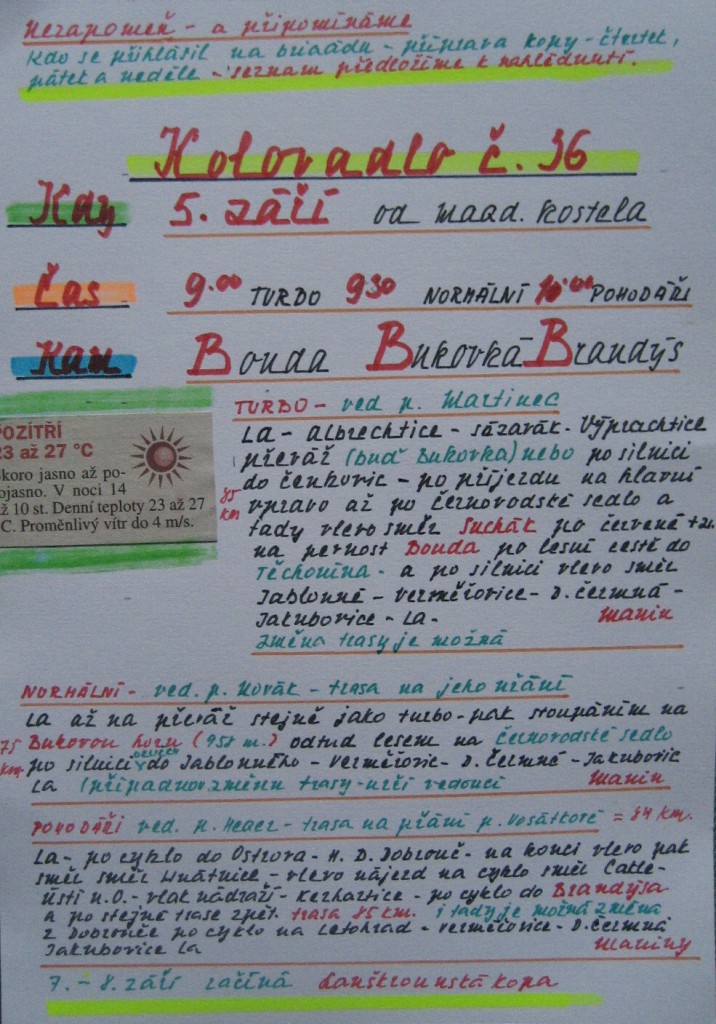 Nezapomeň - a připomínáme
Kdo se přihlásil na brigádu - příprava kopy - čtvrtek,
pátek a neděle - seznam předložíme k nahlédnutí.
Kolovadlo č. 36
Kdy 5. září od maad. kostela
Čas 9.00 TURBO 9.30 NORMÁLNÍ 10.00 POHODÁŘI
Kam Bouda Bukovká Brandýs
POZÍTŘÍ
23 až 27 °C
Skoro jasno až po-
lojasno. V noci 14
až 10 st. Denní teploty 23 až 27
°C. Proměnlivý vítr do 4 m/s.
TURBO - ved p. Martinec
La - Albrechtice - sázavák. Výprachtice
převář (buď Bukovka) nebo po silnici
do čenkovic - po příjezdu na hlavní
85 km
vpravo až po černovodské sedlo a
tady vlevo směr Suchák po červené + zn.
na pevnost Bouda po lesní cestě do
Těchonína - a po silnici vlevo směr
Jablonné - Verměřovice - D. čermná -
Jakubovice - La - Manin
Změna trasy je možná
NORMÁLNÍ - ved. p. Novák - trasa na jeho přání
La až na převář stejně jako turbo - pak stoupáním na
75 km Bukovou horu (958 m.) odtud lesem na černovodské sedlo
po silnici do Jablonného - Verměřovic - D. Čermné - Jakubovic
La (případnou změnu trasy - určí vedoucí Manin
POHODÁŘI ved. p. - trasa na přání p. Vosátkové = 84 km.
La - po cyklo do Ostrova - H. D. Dobrouč - na konci vlevo pak
směr směr Hnátnice - vlevo nájezd na cyklo směr
Ústí n.O. - vlak nádraží - Kerhartice - po cyklo do Brandýsa
a po stejné trase zpět. trasa 85 km. i tady je možná změna
z Dobrouče po cyklo na Letohrad - Verměřovice - D. čermná
Jakubovice La Maniny
7. - 8. září začíná Lanškrounská kopa